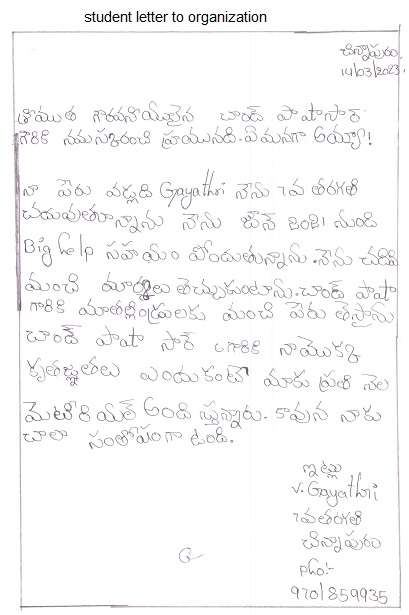 student letter to organization
చిన్నాపురం,
14/03/2023.
శ్రీముత గౌరవనీయులైన చాంద్ పాషాసార్
గారికి నమస్కరించి వ్రాయునది. ఏమనగా అయ్యా!
నా పేరు వడ్లడి Gayathri నేను 7వ తరగతి
చదువుతున్నాను నేను జూన్ నుండి
Big help సహాయం పొందుతున్నాను. నేను చదివి
మంచి మార్కులు తెచ్చుకుంటాను. చాంద్ పాషా
గారికి మాతల్లిండ్రులకు మంచి పేరు తెస్తాను
చాంద్ పాషా సార్ గారికి నాయొక్క
కృతజ్ఞతలు ఎందుకంటే మాకు ప్రతి నెల
మెటీరియల్ అంది స్తున్నారు. కావున నాకు
చాలా సంతోషంగా ఉంది.
ఇట్లు
V. Gayathri
7వతరగతి
చిన్నాపురం
pho:-
9701859935